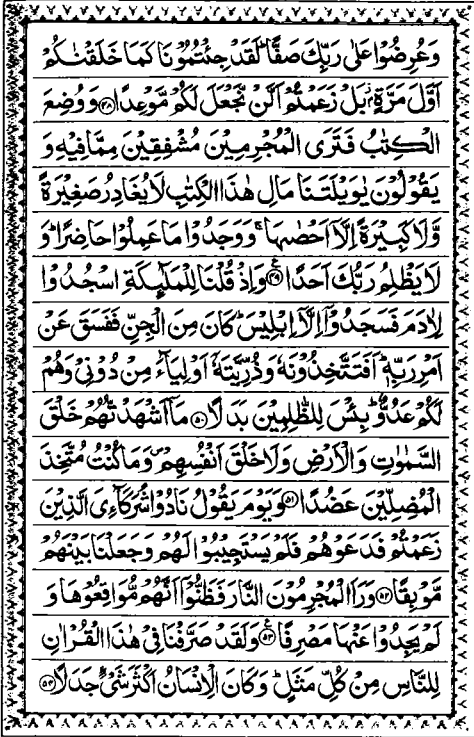 وَعُرِضُوْا عَلٰى رَبِّكَ صَفًّا ؕ لَقَدْ جِئْتُمُوْنَا كَمَا خَلَقْنٰكُمْ
اَوَّلَ مَرَّةٍۭ ؗ بَلْ زَعَمْتُمْ اَلَّنْ نَّجْعَلَ لَكُمْ مَّوْعِدًا ﴿۴۸﴾ وَوُضِعَ
الْكِتٰبُ فَتَرَى الْمُجْرِمِيْنَ مُشْفِقِيْنَ مِمَّا فِيْهِ وَ
يَقُوْلُوْنَ يٰوَيْلَتَنَا مَالِ هٰذَا الْكِتٰبِ لَا يُغَادِرُ صَغِيْرَةً
وَّلَا كَبِيْرَةً اِلَّاۤ اَحْصٰىهَا ۚ وَوَجَدُوْا مَا عَمِلُوْا حَاضِرًا ؕ وَ
لَا يَظْلِمُ رَبُّكَ اَحَدًا ﴿۴۹﴾ وَاِذْ قُلْنَا لِلْمَلٰٓئِكَةِ اسْجُدُوْا
لِاٰدَمَ فَسَجَدُوْۤا اِلَّاۤ اِبْلِيْسَ ؕ كَانَ مِنَ الْجِنِّ فَفَسَقَ عَنْ
اَمْرِ رَبِّهٖ ؕ اَفَتَتَّخِذُوْنَهٗ وَذُرِّيَّتَهٗۤ اَوْلِيَآءَ مِنْ دُوْنِيْ وَهُمْ
لَكُمْ عَدُوٌّ ؕ بِئْسَ لِلظّٰلِمِيْنَ بَدَلًا ﴿۵۰﴾ مَاۤ اَشْهَدْتُّهُمْ خَلْقَ
السَّمٰوٰتِ وَالْاَرْضِ وَلَا خَلْقَ اَنْفُسِهِمْ ۪ وَمَا كُنْتُ مُتَّخِذَ
الْمُضِلِّيْنَ عَضُدًا ﴿۵۱﴾ وَيَوْمَ يَقُوْلُ نَادُوْا شُرَكَآءِيَ الَّذِيْنَ
زَعَمْتُمْ فَدَعَوْهُمْ فَلَمْ يَسْتَجِيْبُوْا لَهُمْ وَجَعَلْنَا بَيْنَهُمْ
مَّوْبِقًا ﴿۵۲﴾ وَرَاَ الْمُجْرِمُوْنَ النَّارَ فَظَنُّوْۤا اَنَّهُمْ مُّوَاقِعُوْهَا وَ
لَمْ يَجِدُوْا عَنْهَا مَصْرِفًا ﴿۵۳﴾ وَلَقَدْ صَرَّفْنَا فِيْ هٰذَا الْقُرْاٰنِ
لِلنَّاسِ مِنْ كُلِّ مَثَلٍ ؕ وَكَانَ الْاِنْسَانُ اَكْثَرَ شَيْءٍ جَدَلًا ﴿۵۴﴾